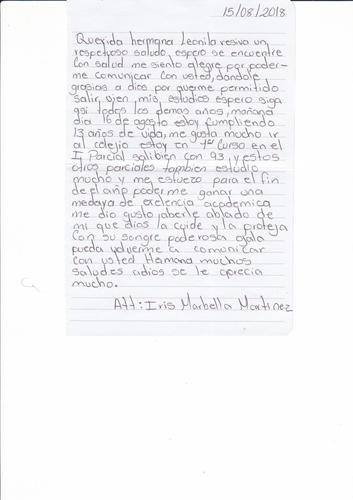 15/08/2018
Querida hermana Leonila resiva un
respetuoso saludo, espero se encuentre
con salud me siento alegre por poder-
me comunicar con usted, dandole
grasias a dios por averme permitido
salir vien, mis estudios espero siga
asi todos los demas años, mañana
dia 16 de agosto estoy cumpliendo
13 años de vida, me gusta mucho ir
al colejio estoy en 1er curso en el
I Parcial salibien con 93, y estos
otros parciales tambien estudio
mucho y me esfuerzo para el fin
de el año poderme ganar una
medaya de exelencia academica
me dio gusto jaberle ablado de
mi que dios la cuide y la proteja
con su sangre poderosa ojala
pueda volverme a comunicar
con usted Hemana muchos
saludes adios se le aprecia
mucho.
Att: Iris Marbella Martinez